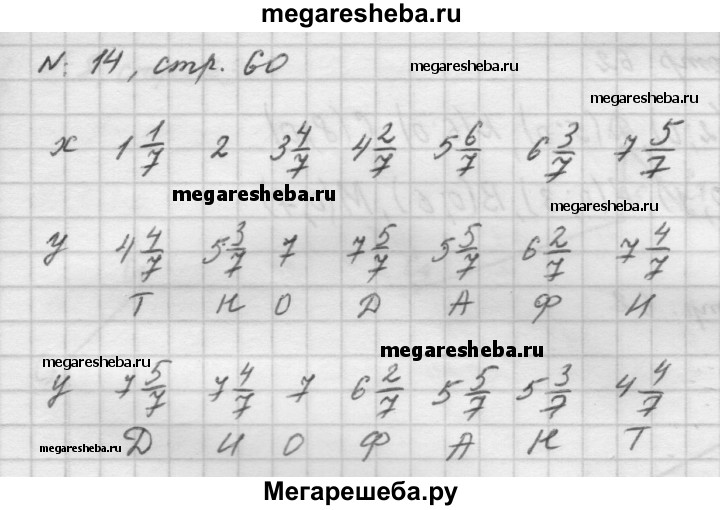 megaresheba.ru
№ 14, стр. 60
megaresheba.ru
megaresheba.ru
x 1 1/7 2 3 4/7 4 2/7 5 6/7 6 3/7 7 5/7
megaresheba.ru
megaresheba.ru
y 4 4/7 5 3/7 7 7 5/7 5 5/7 6 2/7 7 4/7
Т Н О Д А Ф И
megaresheba.ru
megaresheba.ru
y 7 5/7 7 4/7 7 6 2/7 5 5/7 5 3/7 4 4/7
Д И О Ф А Н Т
megaresheba.ru
Мегарешеба.ру